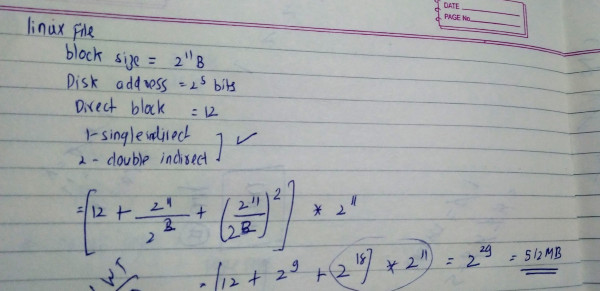 DATE
PAGE No.
linux File
block size = 2^11 B
Disk address = 2^5 bits
Direct block = 12
1-single indirect
2 - double indirect ] ✓
= [12 + 2^11/2^2 + (2^11/2^2)^2] * 2^11
= [12 + 2^9 + 2^18] * 2^11 = 2^29 = 512MB